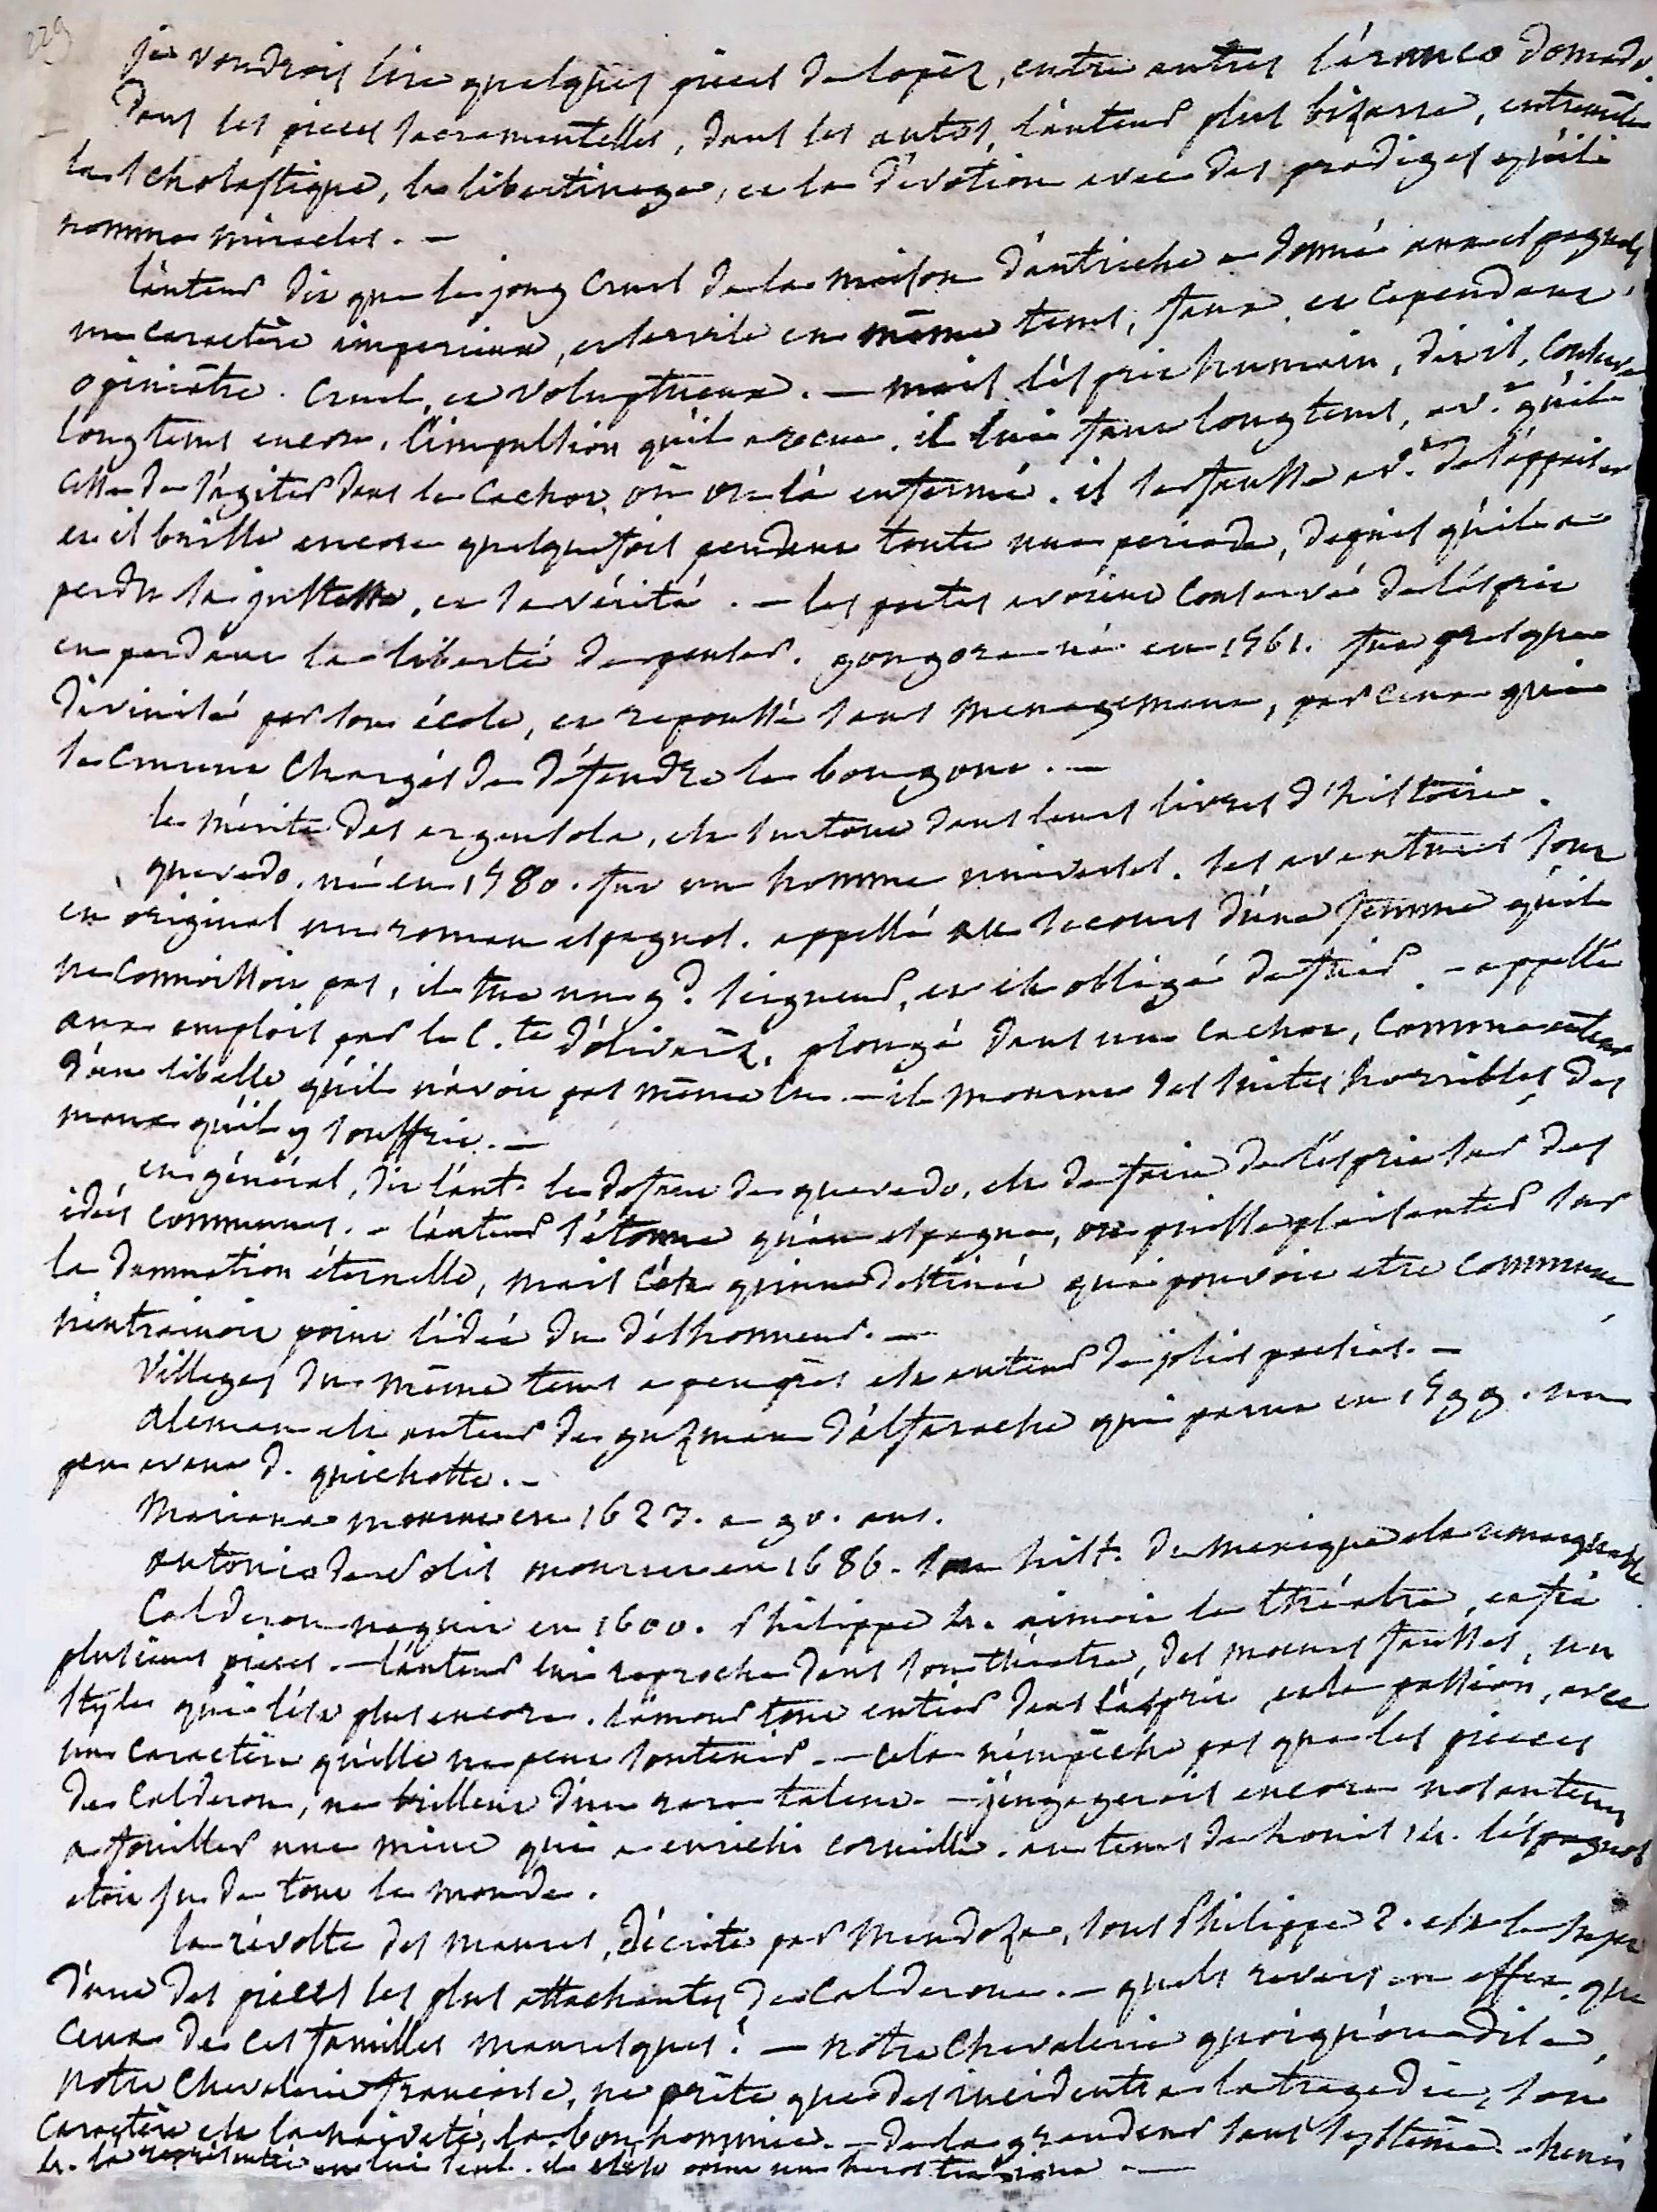 229
je voudrois lire quelques pieces de lopèz, entre autres l'éranco domado.
dans les pieces sacramentelles, dans les autos, l'auteur plus bizarre, entremêle
la scholastique, le libertinage, et la dévotion avec des prodiges qu'il
nomme miracles. —
l'auteur dit que le joug cruel de la maison d'autriche a donné aux espagnols
un caractère imperieux, et servile en même tems, faux, et cependant
opiniâtre. cruel, et voluptueux. — mais l'esprit humain, dit il, conserve
longtems encore, l'impulsion qu'il a recue. il lui faut longtems, av.t qu'il
cesse de s'agiter dans le cachot, où on l'a enfermé. il se fausse av.t de s'appaiser
et il brille encore quelquefois pendant toute une periode, depuis qu'il a
perdu la justesse, et la vérité. — les poetes avoient conservé de l'esprit
en perdant la liberté de penser. gongora né en 1561. fut presque
divinisé par son école, et repoussé sans menagement, par ceux qui
se crurent chargés de défendre le bon gout. —
le mérite des argensola, est surtout dans leurs livres d'histoire.
quevedo, né en 1580. fut un homme universel. ses aventures sont
en original un roman espagnol. appellé au secours d'une femme qu'il
ne connoissoit pas, il tue un g.d seigneur, et est obligé de fuir. — appellé
aux emplois par le c.te d'olivarèz, plongé dans un cachot, comme auteur
d'un libelle qu'il n'avoit pas même lu. — il mourut des suites horribles, des
maux qu'il y souffrit. —
en général, dit l'aut. le défaut de quevedo, est de faire de l'esprit sur des
idées communes. — l'auteur s'étonne qu'en espagne, on puisse plaisanter sur
la damnation éternelle, mais c'est qu'une destinée qui pouvoit etre commune
n'entrainoit point l'idée du déshonneur. —
Villegas du même tems a peu près est auteur de jolies poesies. —
Aleman est auteur de guzman d'alfarache qui parut en 1599. un
peu avant d. quichotte. —
Mariana mourut en 1623. a 90. ans.
antonio de Solis mourut en 1686. son hist. du mexique est remarquable.
Calderon naquit en 1600. Philippe 4. aimoit le théatre, et fit
plusieurs pieces. — l'auteur lui reproche dans son théatre, des moeurs fausses, un
style qui l'est plus encore. l'amour tout entier dans l'esprit, et la passion, avec
un caractère qu'elle ne peut soutenir. — cela n'empêche pas que les pieces
de Calderon, ne brillent d'un rare talent. — j'engagerois encore nos auteurs
a fouiller une mine qui a enrichi corneille. au tems de Louis 14. l'éspagnol
etoit su de tout le monde.
la révolte des maures, décrite par Mendoza, sous Philippe 2. est le sujet
d'une des pieces les plus attachantes, de Calderon. — quels revers en effet, que
ceux de ces familles mauresques! — notre chevalerie quoiqu'on en dise,
notre chevalerie francoise, ne prête que des incidents a la tragedie, son
caractère est la naiveté, la bonhommie. — de la grandeur sans systême. — henri
4. l'a représenté en lui seul.